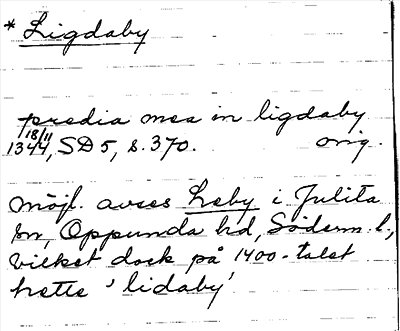 * Ligdaby
predia mea in ligdaby
18/11
1344, SD 5, s. 370. orig.
möjl. avses Leby i Julita
sn, Oppunda hd, Söderm. l.,
vilket dock på 1400-talet
hette 'lidaby'.